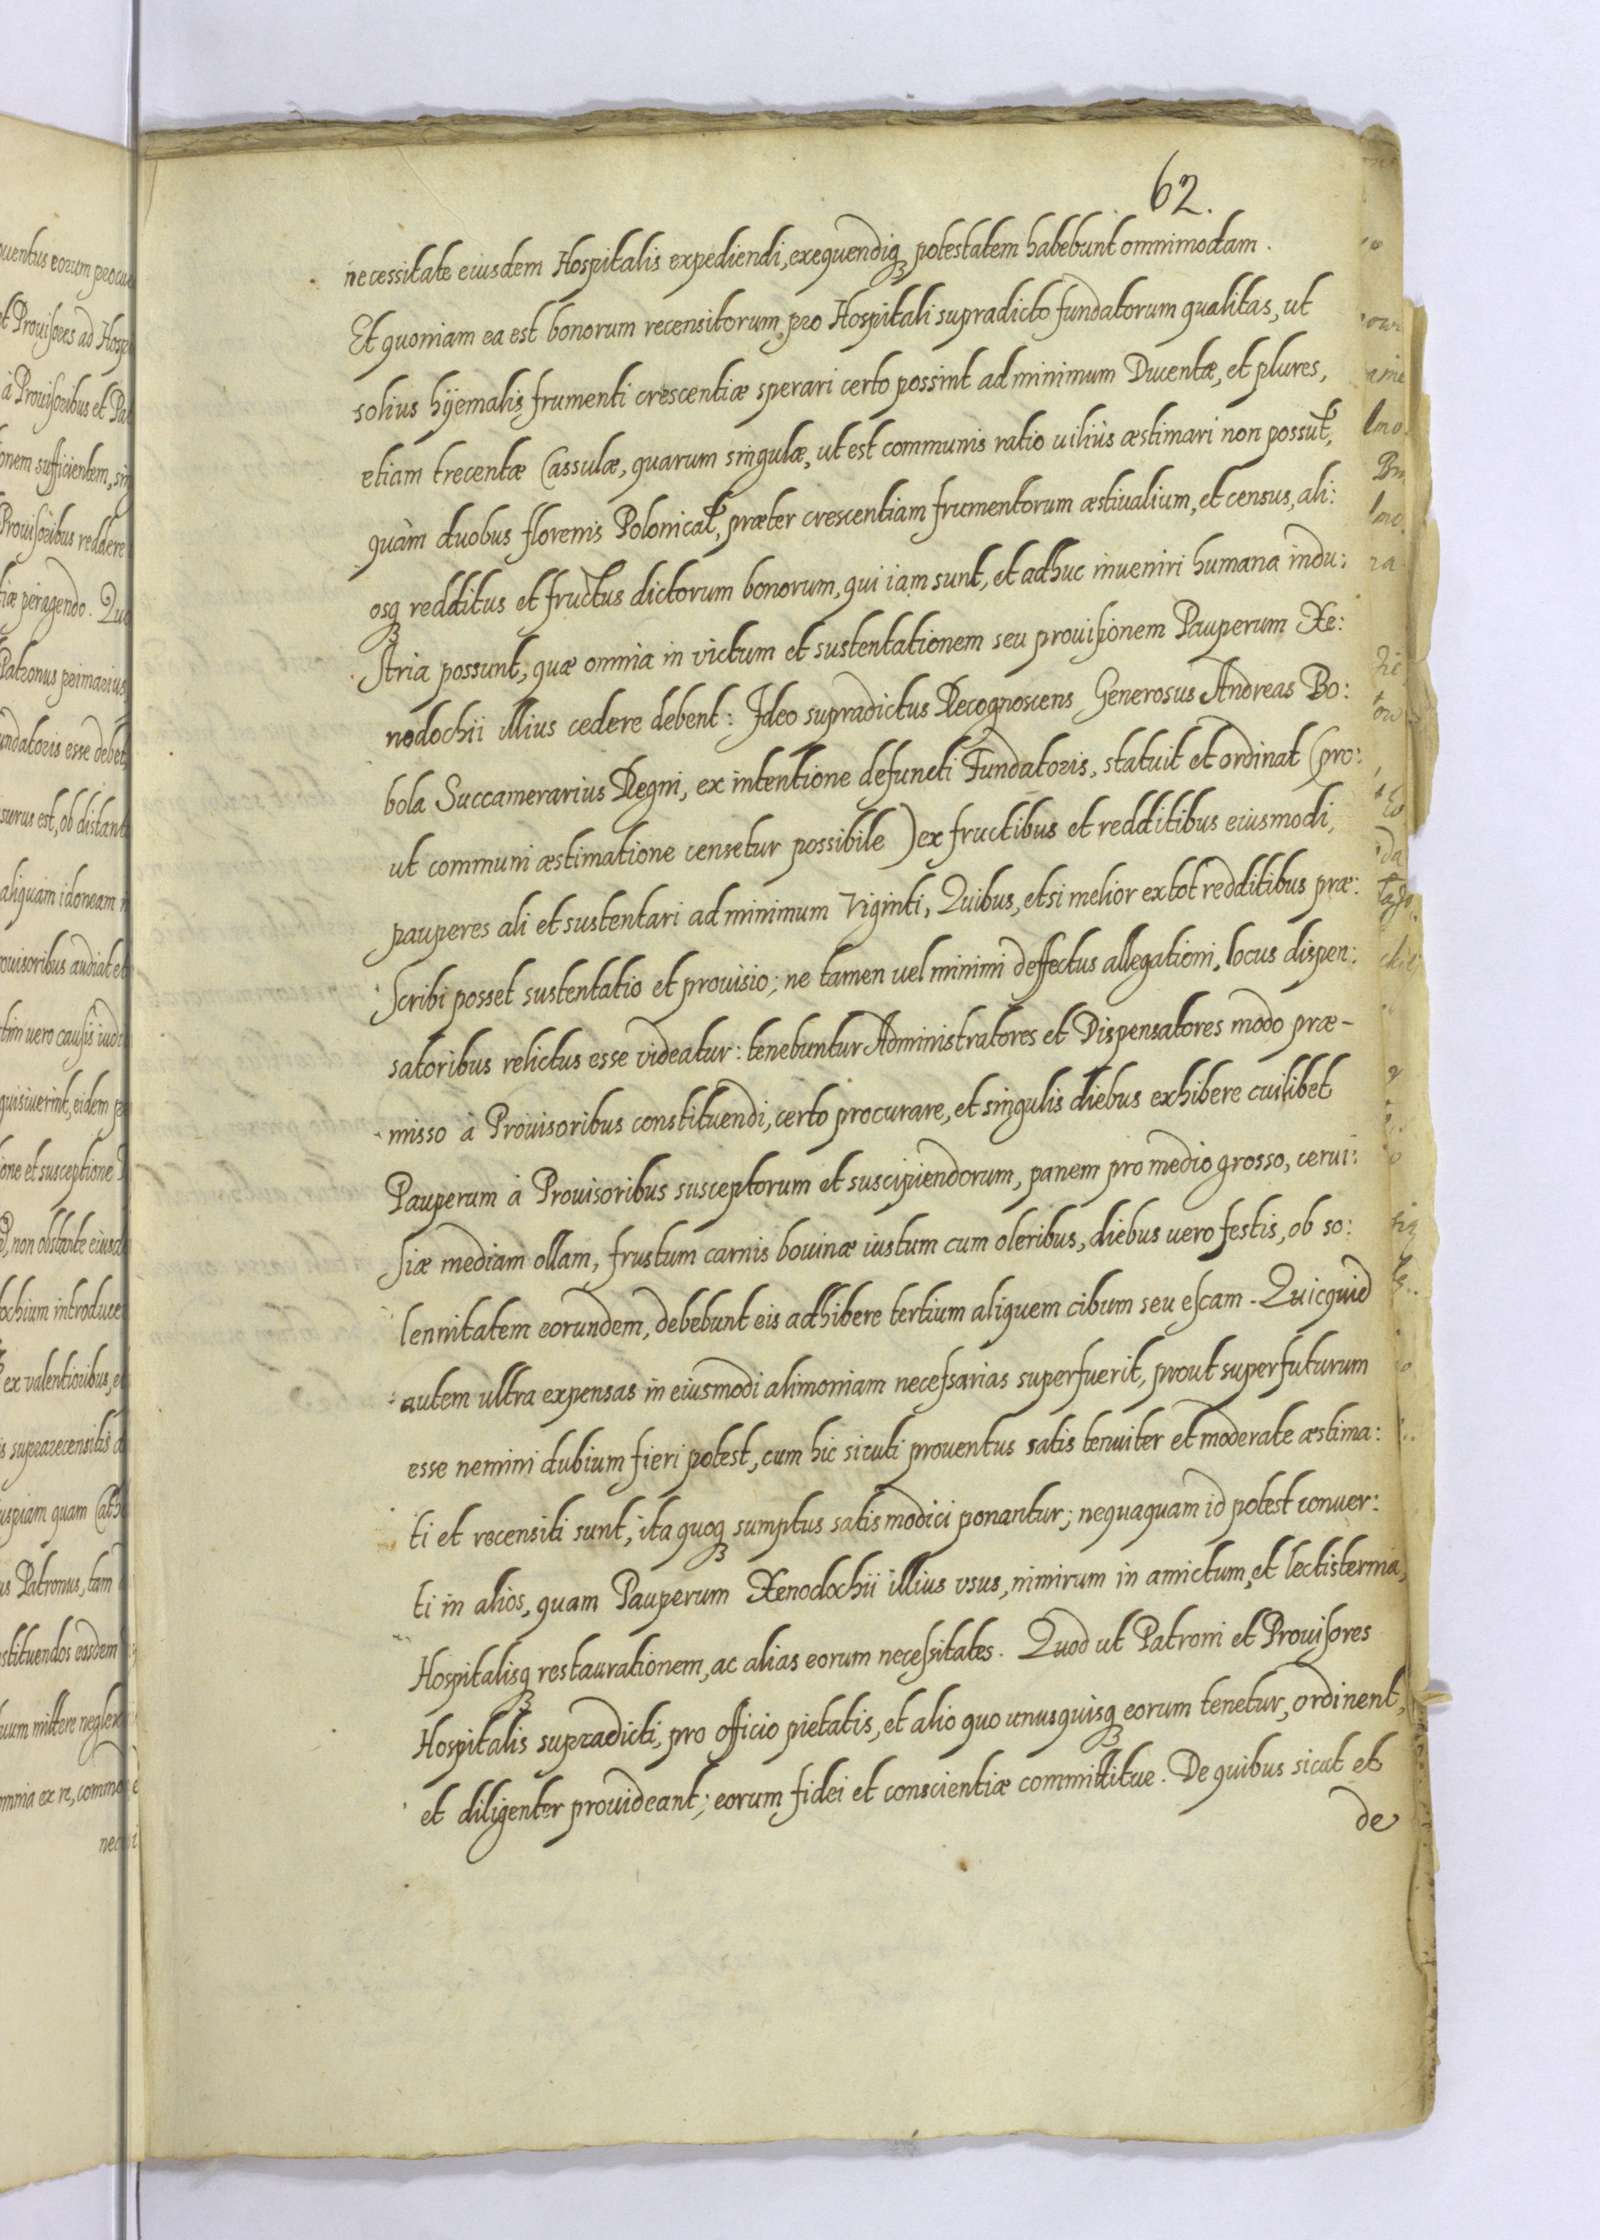 62.
necessitate eiusdem Hospitalis expediendi, exequendiqꝫ potestatem habebunt omnimodam.
Et quoniam ea est bonorum recensitorum, pro Hospitali supradicto fundatorum qualitas, ut
solius hyemalis frumenti crescentiæ sperari certo possint ad minimum Ducentæ, et plures,
etiam trecentæ Cassulæ, quarum singulæ, ut est communis ratio uiliùs æstimari non possūt,
quàm duobus florenis Polonicał, præter crescentiam frumentorum æstiualium, et census, ali:
osqꝫ redditus et fructus dictorum bonorum, qui iam sunt, et adhuc inueniri humana indu:
stria possunt, quæ omnia in victum et sustentationem seu prouisionem Pauperum Xe:
nodochii illius cedere debent: Ideo supradictus Recognoscens Generosus Andreas Bo:
bola Succamerarius Regni, ex intentione defuncti Fundatoris, statuit et ordinat (pro:
ut communi æstimatione censetur possibile) ex fructibus et redditibus eiusmodi,
pauperes ali et sustentari ad minimum Viginti, Quibus, etsi melior ex tot redditibus præ:
scribi posset sustentatio et prouisio; ne tamen uel minimi deffectus allegationi, locus dispen:
satoribus relictus esse videatur: tenebuntur Administratores et Dispensatores modo præ-
misso à Prouisoribus constituendi, certo procurare, et singulis diebus exhibere cuilibet
Pauperum à Prouisoribus susceptorum et suscipiendorum, panem pro medio grosso, cerui:
siæ mediam ollam, frustum carnis bouinæ iustum cum oleribus, diebus uero festis, ob so:
lennitatem eorundem, debebunt eis adhibere tertium aliquem cibum seu escam. Quicquid
autem ultra expensas in eiusmodi alimoniam necessarias superfuerit, prout superfuturum
esse nemini dubium fieri potest, cum hic sicuti prouentus satis tenuiter et moderate æstima:
ti et recensiti sunt, ita quoqꝫ sumptus satis modici ponantur; nequaquam id potest conuer:
ti in alios, quam Pauperum Xenodochii illius vsus, nimirum in amictum, et lectisternia,
Hospitalisqꝫ restaurationem, ac alias eorum necessitates. Quod ut Patroni et Prouisores
Hospitalis supradicti, pro officio pietatis, et alio quo unusquisqꝫ eorum tenetur, ordinent,
et diligenter prouideant; eorum fidei et conscientiæ committitue. De quibus sicut et
de